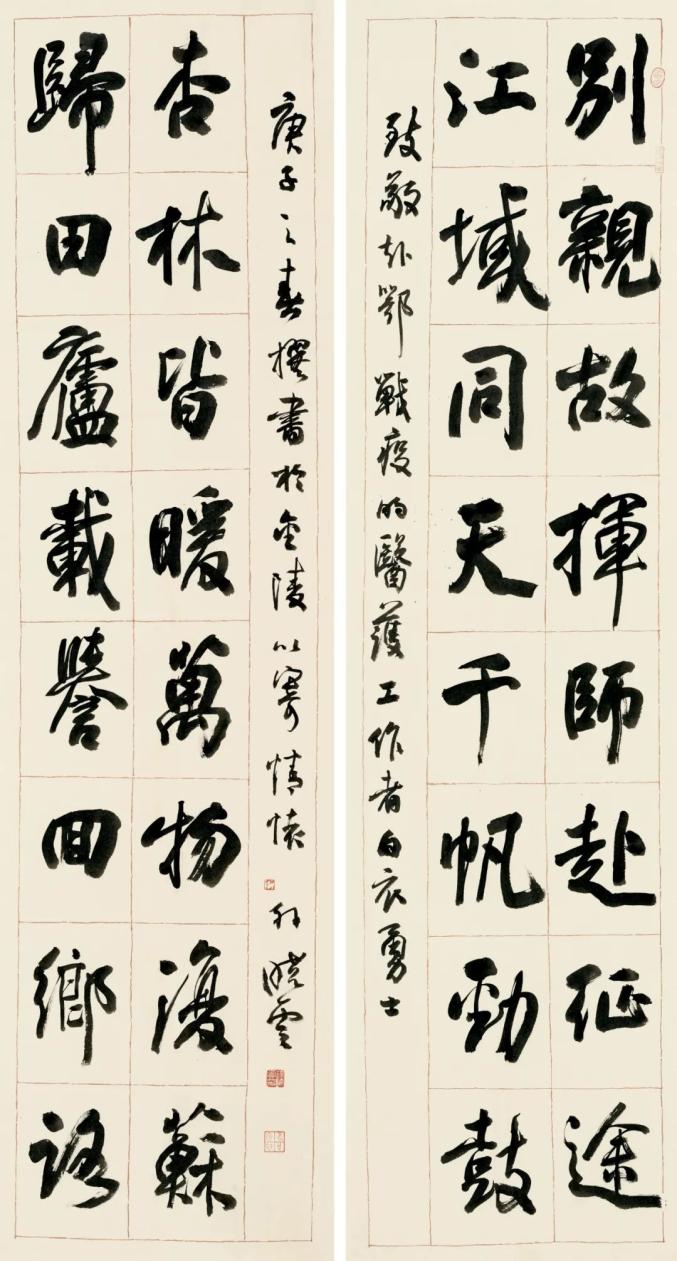 別親故揮師赴征途
江域同天千帆勁鼓
致敬赴鄂戰疫的醫護工作者白衣勇士
歸田廬載譽回鄉路
杏林皆暖萬物復蘇
庚子之春撰書於金陵以寄情懷 孫曉雲